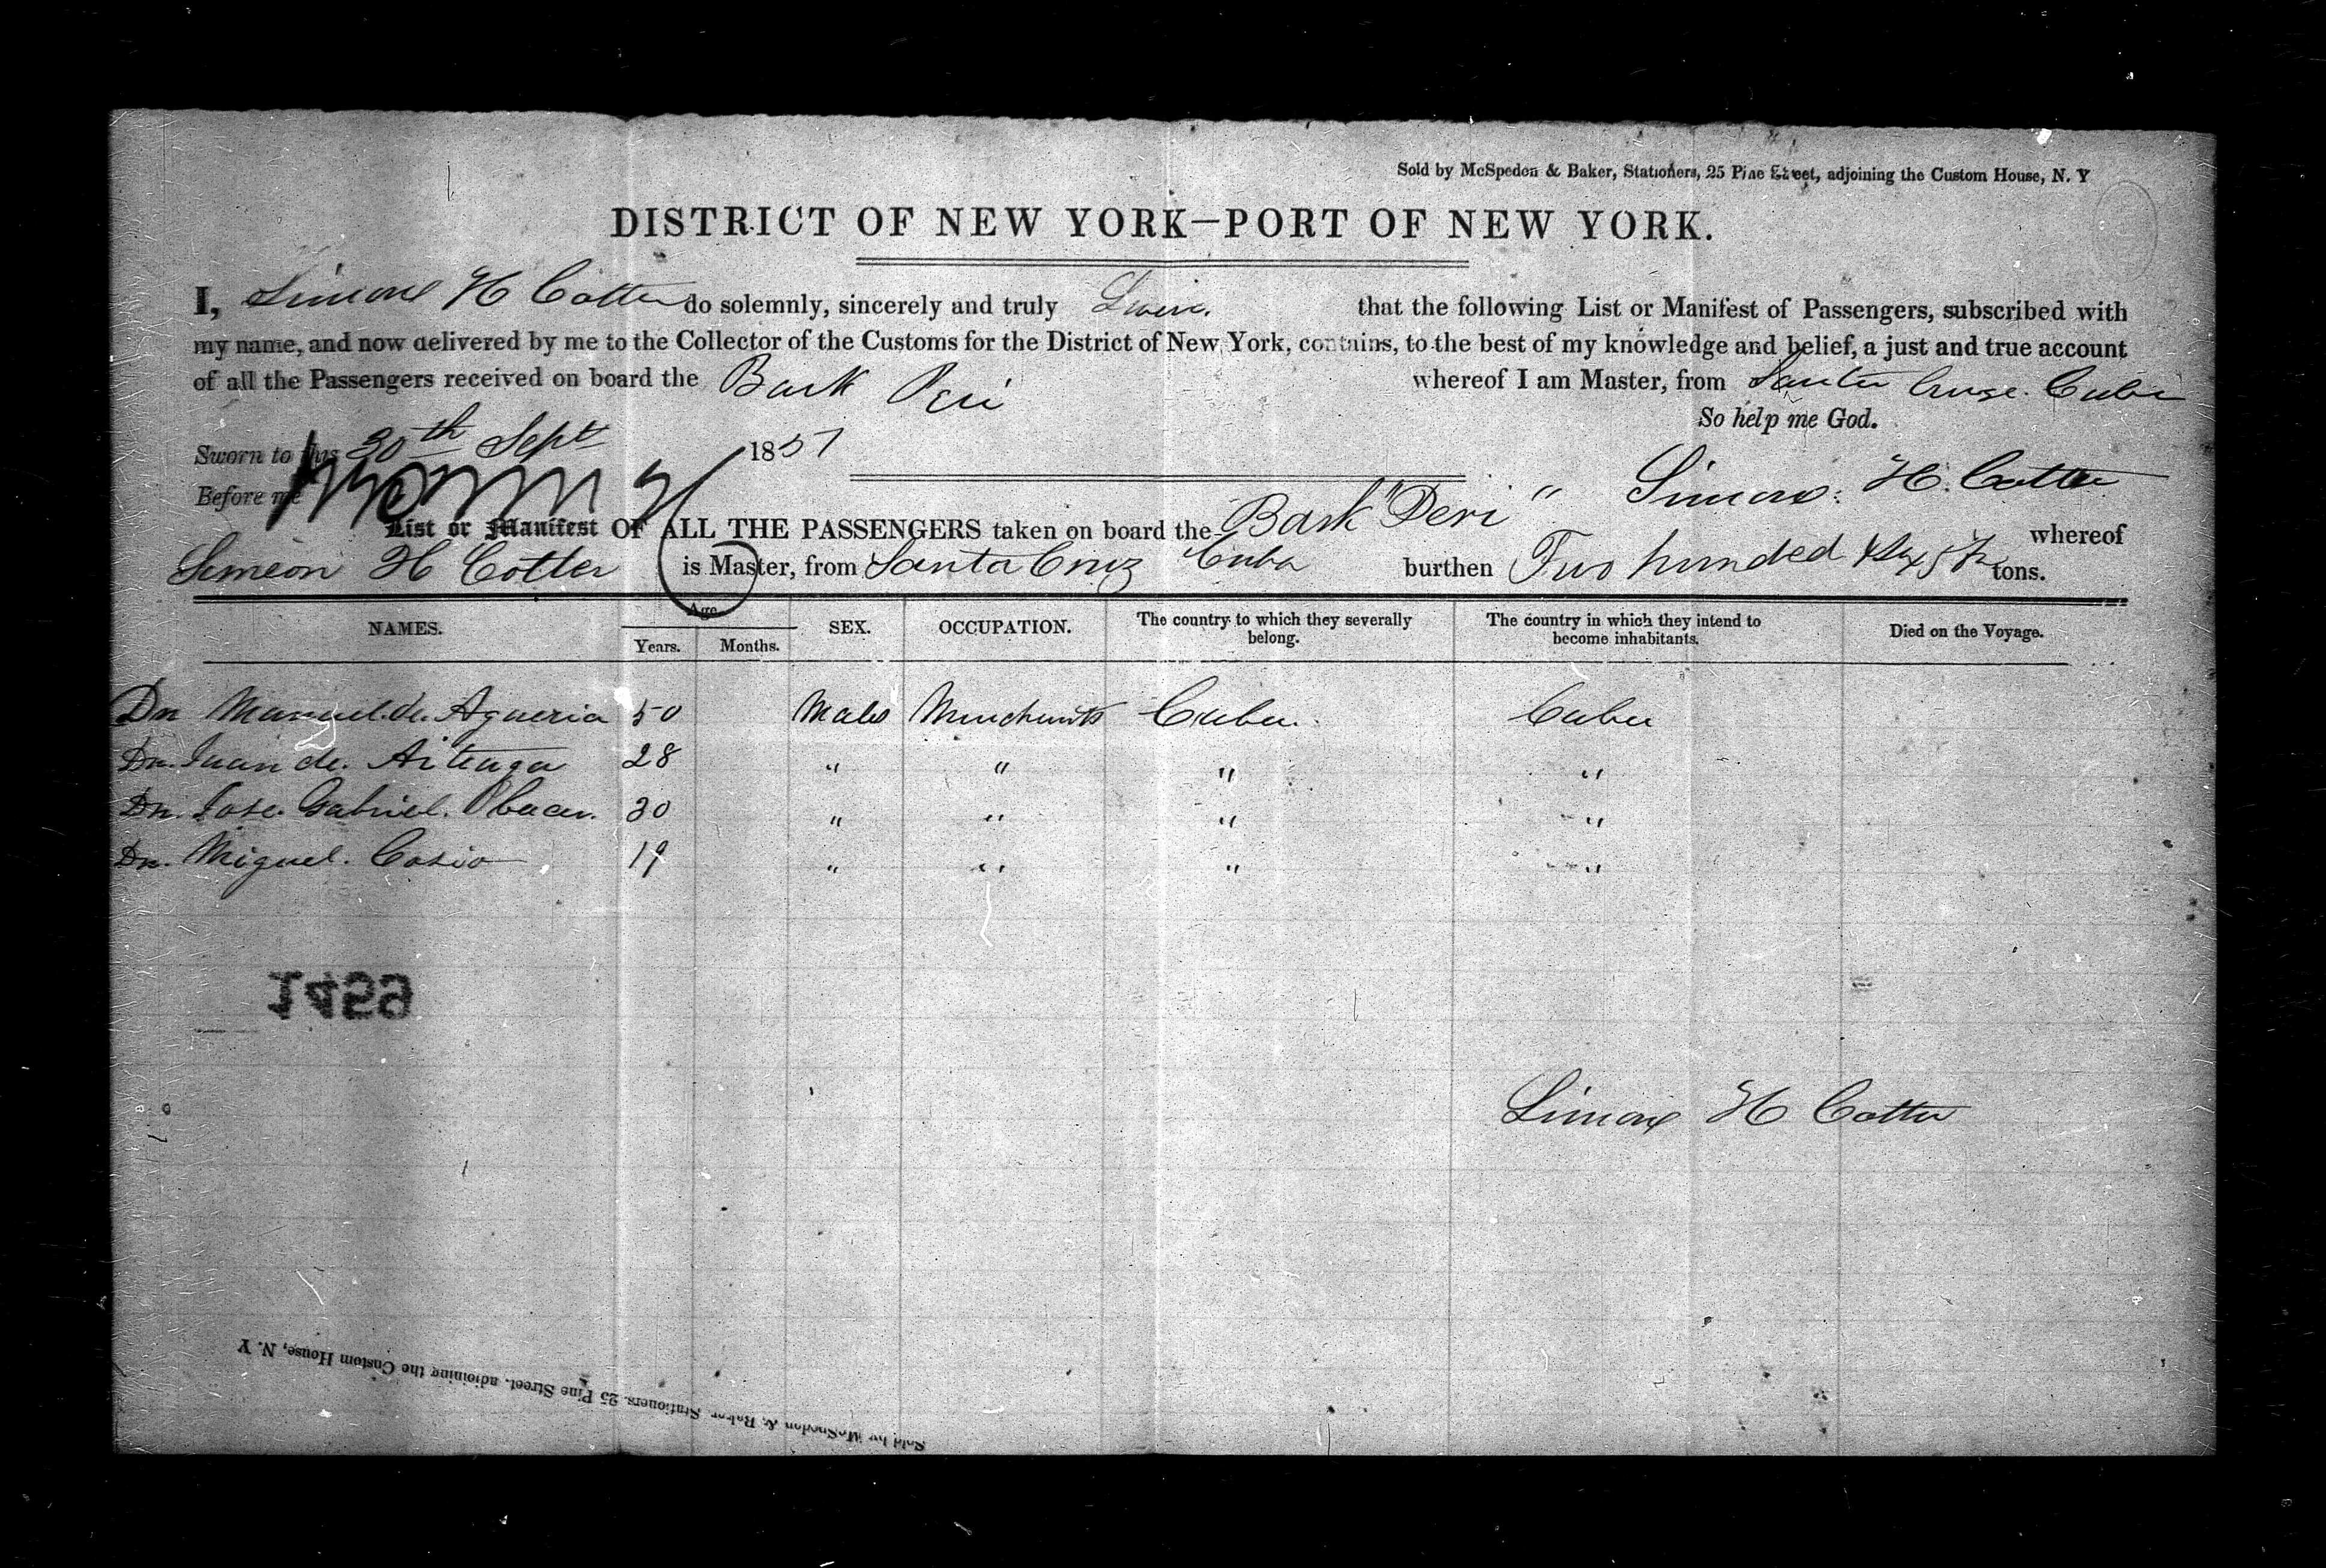 Sold by McSpedon & Baker, Stationers, 25 Pine Street, adjoining the Custom House, N. Y
DISTRICT OF NEW YORK—PORT OF NEW YORK.
I, Simeon H Cotter do solemnly, sincerely and truly Swear that the following List or Manifest of Passengers, subscribed with
my name, and now delivered by me to the Collector of the Customs for the District of New York, contains, to the best of my knowledge and belief, a just and true account
of all the Passengers received on board the Bark Peri whereof I am Master, from Santa Cruse. Cuba
So help me God.
Sworn to this 30th Sept 1857
Before me
Simeon. H. Cotter
List or Manifest OF ALL THE PASSENGERS taken on board the Bark "Peri" whereof
Simeon H Cotter is Master, from Santa Cruz Cuba burthen Two hundred tons.
NAMES. Age. SEX. OCCUPATION. The country to which they severally belong. The country in which they intend to become inhabitants. Died on the Voyage.
Years. Months.
Dn Manuel. de. Agueria 50 Males Merchants Cuba. Cuba
Dn. Juan de. Arteaga 28 " " " "
Dn. Jose. Gabriel. 30 " " " "
Dn. Miguel. Cosio 19 " " " "
1459
Simeon H Cotter
Sold by McSpedon & Baker, Stationers, 25 Pine Street, adjoining the Custom House, N. Y